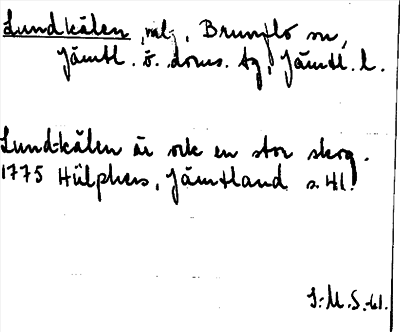 Lundkälen, Brunflo sn,
Jämtl. ö. doms. tg, Jämtl. l.
Lundkälen är ock en stor skog.
1775 Hülphers, Jämtland s. 41.